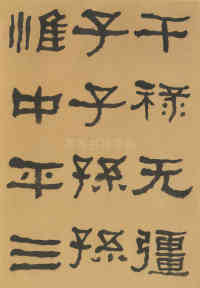 干祿无彊
子子孫孫
惟中平三